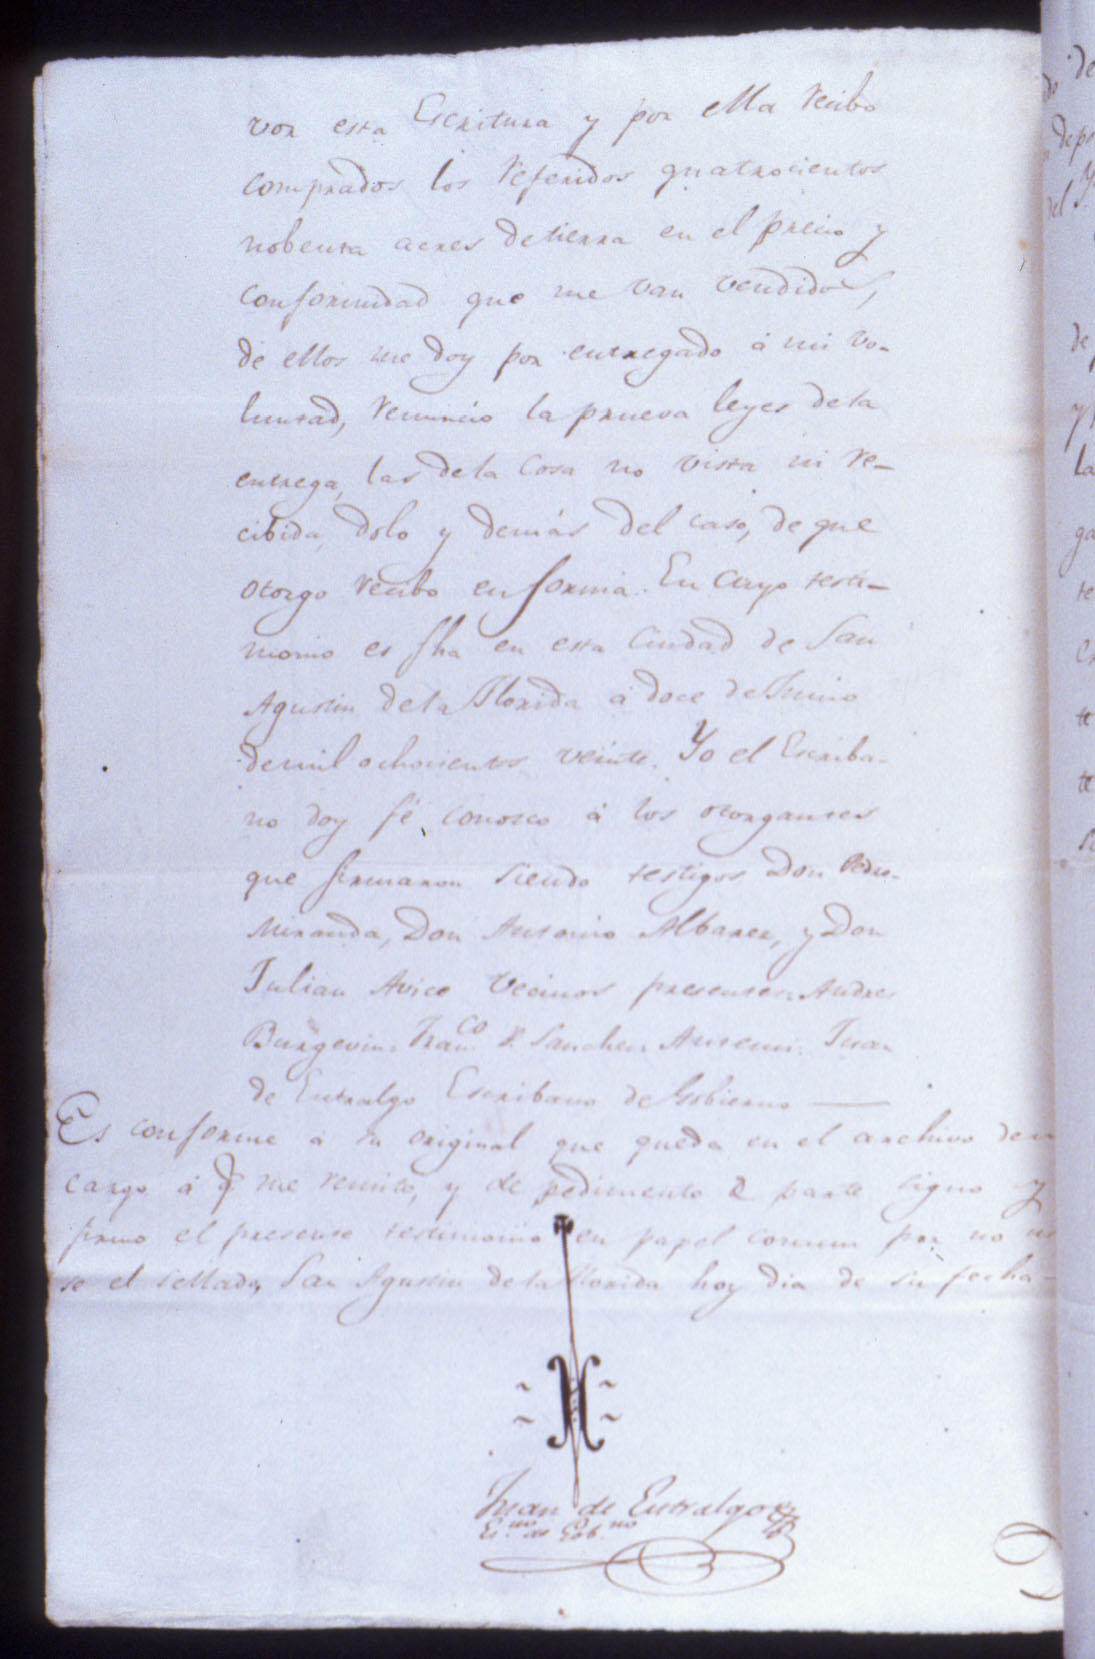 vor esta Escritura y por ella recibo
comprados los referidos quatrocientos
nobenta acres de tierra en el precio y
conformidad que me van vendidos,
de ellos me doy por entregado á mi vo-
luntad, renuncio la prueva leyes de la
entrega, las de la cosa no vista ni re-
cibida, dolo y demás del caso, de que
otorgo recibo en forma. En cuyo testi-
monio es fha en esta Ciudad de San
Agustin de la Florida á doce de Junio
de mil ochocientos veinte. Yo el Escriba-
no doy fé conosco á los otorgantes
que firmaron siendo testigos Don Pedro
Miranda, Don Antonio Albarez, y Don
Julian Avice vecinos presentes. Andres
Burgevin. Franco P. Sanchez Antemi: Juan
de Entralgo Escribano de Gobierno
Es conforme á su original que queda en el archivo de
cargo á q me remito, y de pedimento de parte signo y
firmo el presente testimonio en papel comun por no
se el sellado, San Agustin de la Florida hoy dia de su fecha-
Juan de Entralgo
Esno de Gobno